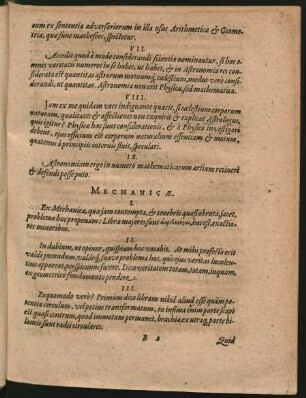 eum ex sententia adversariorum in illa usus Arithmetica & Geome-
tria, quæ sunt mathesews, spectetur.
VII.
Accedit quod à modo considerandi scientiæ nominantur, si hoc o-
mnes veritatis numeros in se habet, ut habet, & in Astronomia res con-
siderata est quantitas astrorum motuumq́; cælestium, modus verò consi-
derandi, ut quantitas. Astronomia non erit Physica, sed mathematica.
VIII.
Jam ex me quidam voce indignante quærit, si cælestium corporum
naturam, qualitates & affectiones non exquirit & explicat Astrologus,
quis igitur? Physica hæc sunt considerationis, & à Physico investigari
debent, ejus officium est corporum naturalium essentiam & motum,
quatenus à principiis internis sunt, speculari.
IX.
Astronomiam ergo in numero mathematicarum artium retinere
& defendi posse puto.
MECHANICÆ.
I.
Ex Mechanica, quæ jam contempta, & tenebris quasi obruta, jacet,
problema hoc proponam: Libræ majores sunt hoc est, exactio-
res minoribus.
II.
In dubium, ut opinor, quispiam hoc vocabit. At mihi profectò erit
valdè jucundum, valde, si problema hoc, quò ejus veritas luculen-
tius appareat, perspicuum faciet. Dico veritatem totam, totam, inquam,
ex geometrico fundamento pendere.
III.
Et quomodo verò? Primùm dico libram nihil aliud esse quàm po-
tentia circulum, vel potius transformatum, in infima enim parte scapi
est quasi centrum, quod immotum permanet, brachia ex utraq́; parte bi-
lancis sunt radii circulares.
B 2 Quid